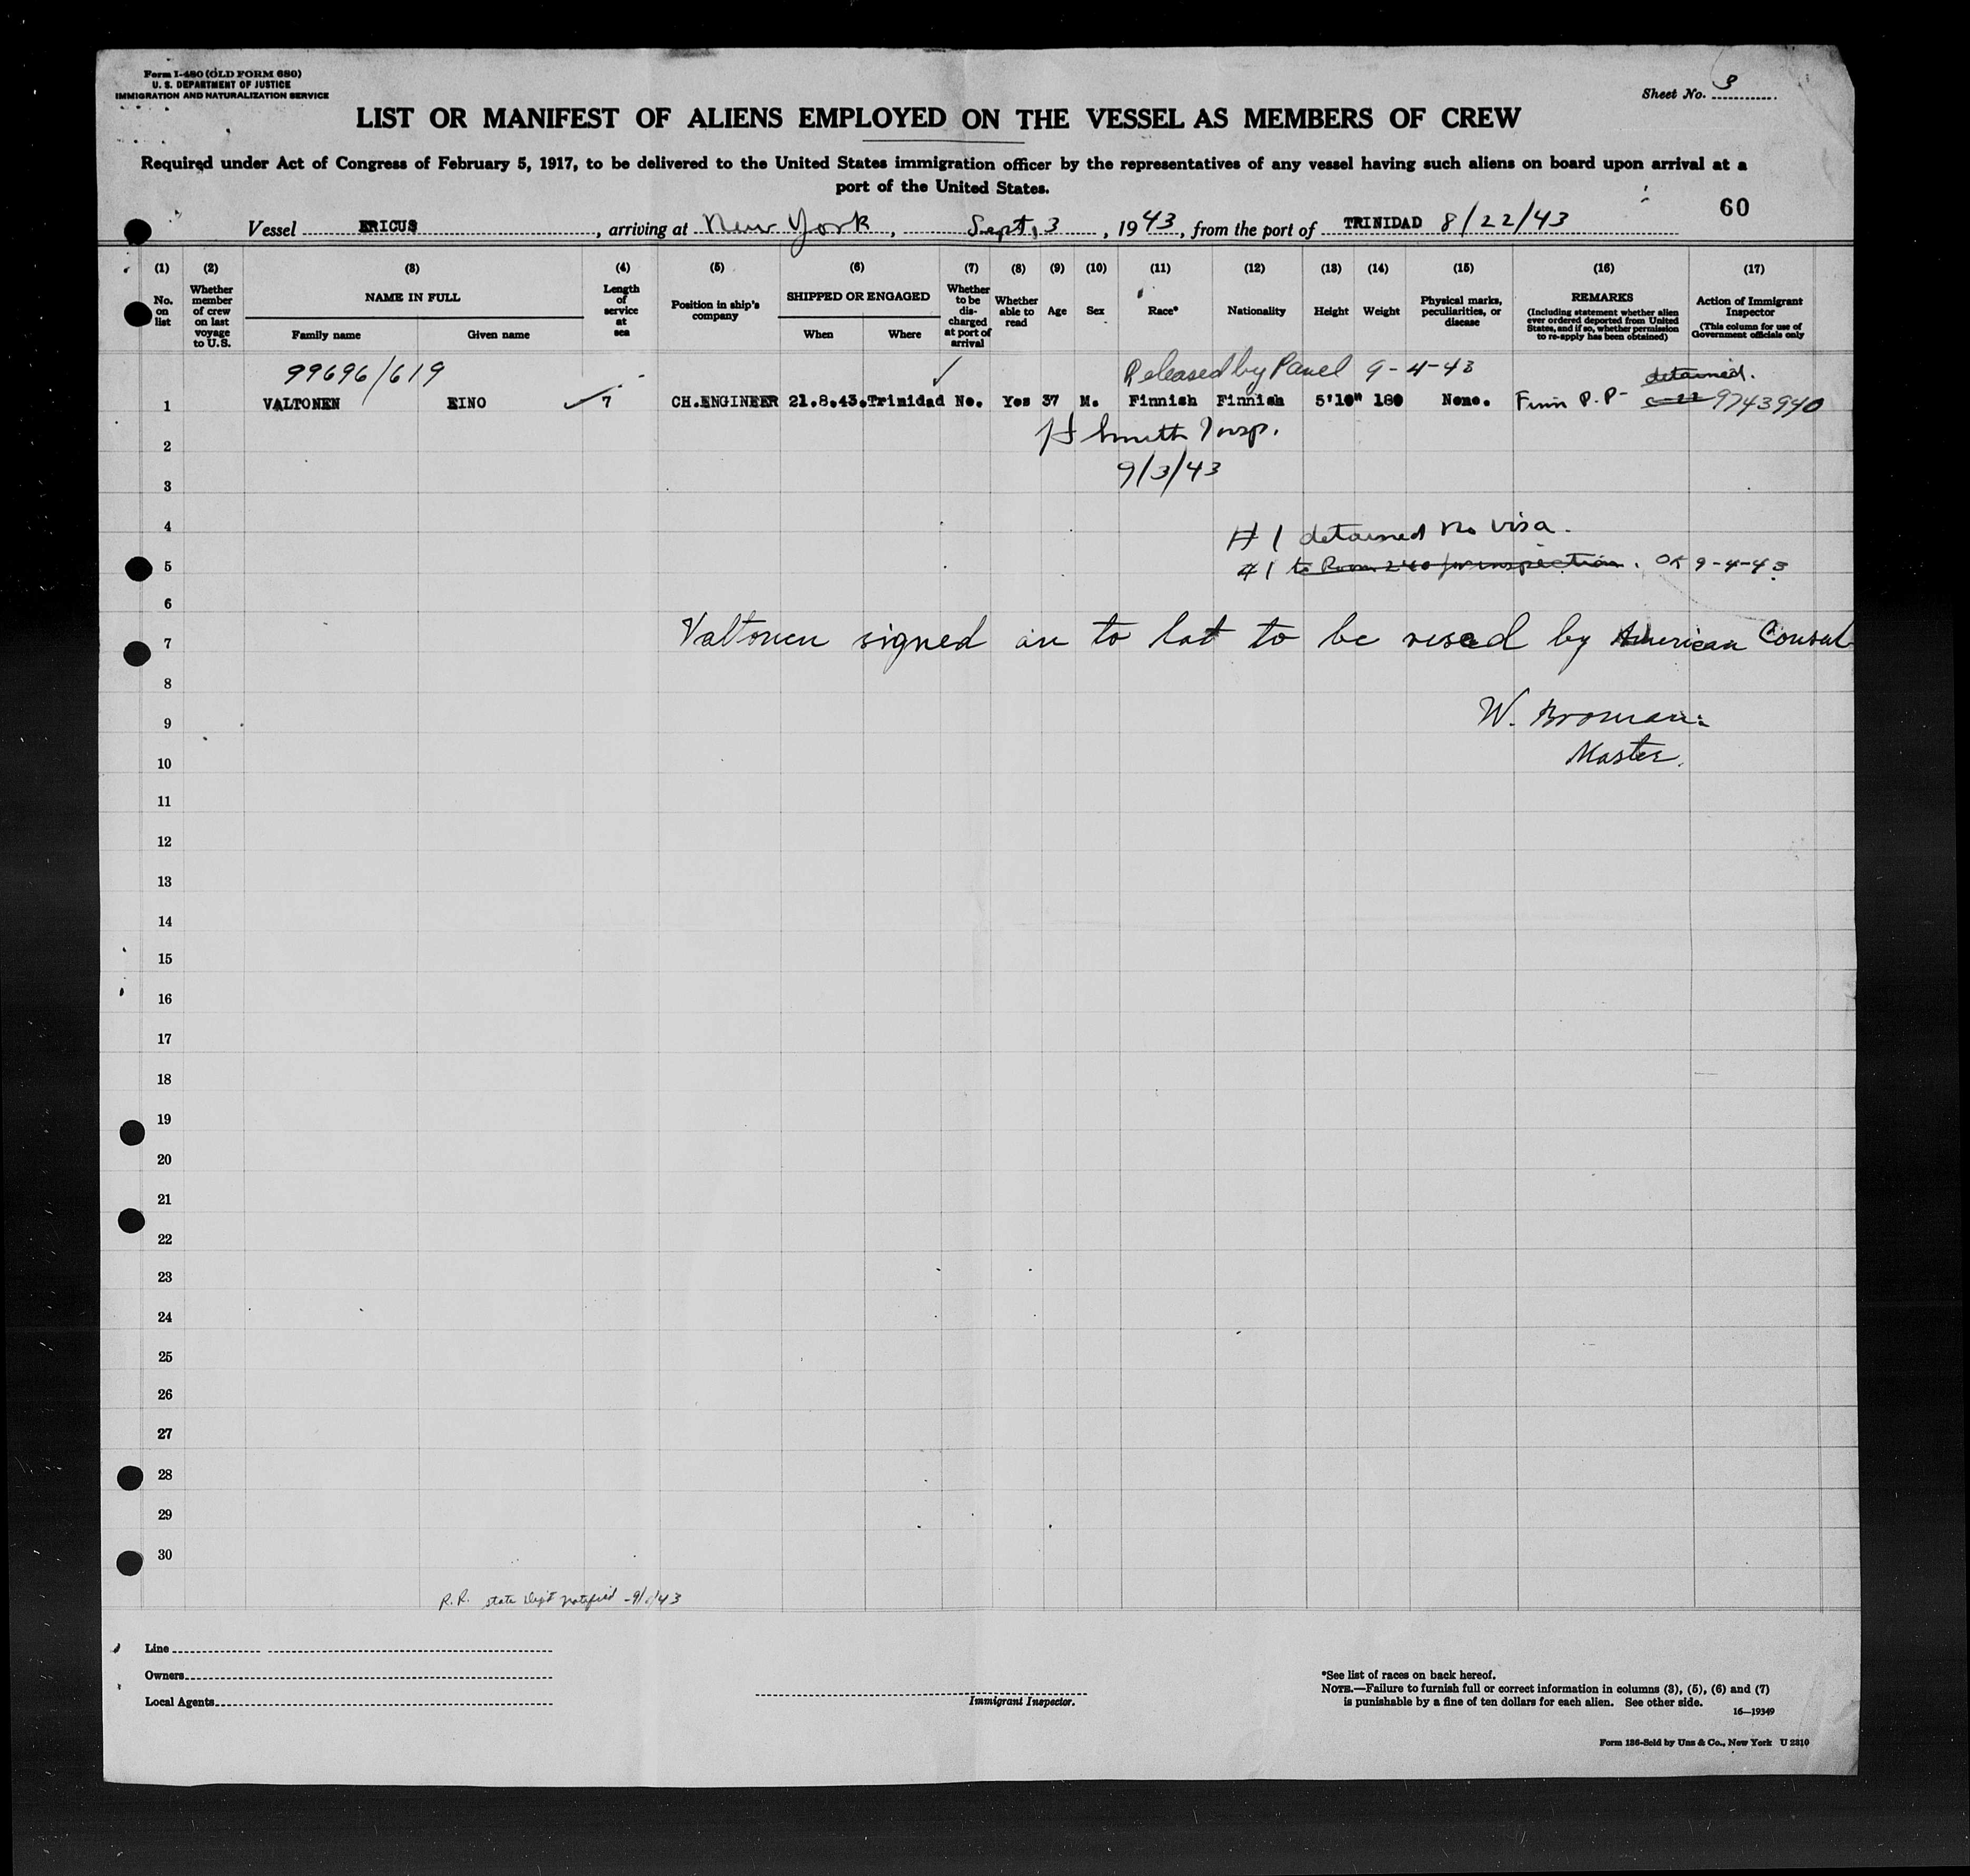 Form I-480 (OLD FORM 680)
U. S. DEPARTMENT OF JUSTICE
IMMIGRATION AND NATURALIZATION SERVICE
Sheet No. 3
LIST OR MANIFEST OF ALIENS EMPLOYED ON THE VESSEL AS MEMBERS OF CREW
Required under Act of Congress of February 5, 1917, to be delivered to the United States immigration officer by the representatives of any vessel having such aliens on board upon arrival at a
port of the United States.
60
Vessel ERICUS, arriving at New York, Sept, 3, 1943, from the port of TRINIDAD 8/22/43
(1) (2) (3) (4) (5) (6) (7) (8) (9) (10) (11) (12) (13) (14) (15) (16) (17)
No. on list
Whether member of crew on last voyage to U.S.
NAME IN FULL
Family name Given name
Length of service at sea
Position in ship's company
SHIPPED OR ENGAGED
When Where
Whether to be discharged at port of arrival
Whether able to read
Age
Sex
Race*
Nationality
Height
Weight
Physical marks, peculiarities, or disease
REMARKS
(Including statement whether alien ever ordered deported from United States, and if so, whether permission to re-apply has been obtained)
Action of Immigrant Inspector
(This column for use of Government officials only
99696/619 Released by Panel 9-4-43 detained.
1 VALTONEN EINO 7 CH.ENGINEER 21.8.43. Trinidad No. Yes 37 M. Finnish Finnish 5'10" 180 None. Finn P.P- 9743940
2 H Smith Insp.
3 9/3/43
4 #1 detained no visa.
5 #1 to Room 240 for inspection. OK 9-4-43
6
7 Valtonen signed on to lat to be visaed by American Consul
8
9 W. Broman
10 Master.
11
12
13
14
15
16
17
18
19
20
21
22
23
24
25
26
27
28
29
30
R.R. state Dept notified -9/ /43
Line
Owners
Local Agents
Immigrant Inspector.
*See list of races on back hereof.
NOTE.—Failure to furnish full or correct information in columns (3), (5), (6) and (7)
is punishable by a fine of ten dollars for each alien. See other side.
16—19349
Form 136-Sold by Unz & Co., New York U 2310